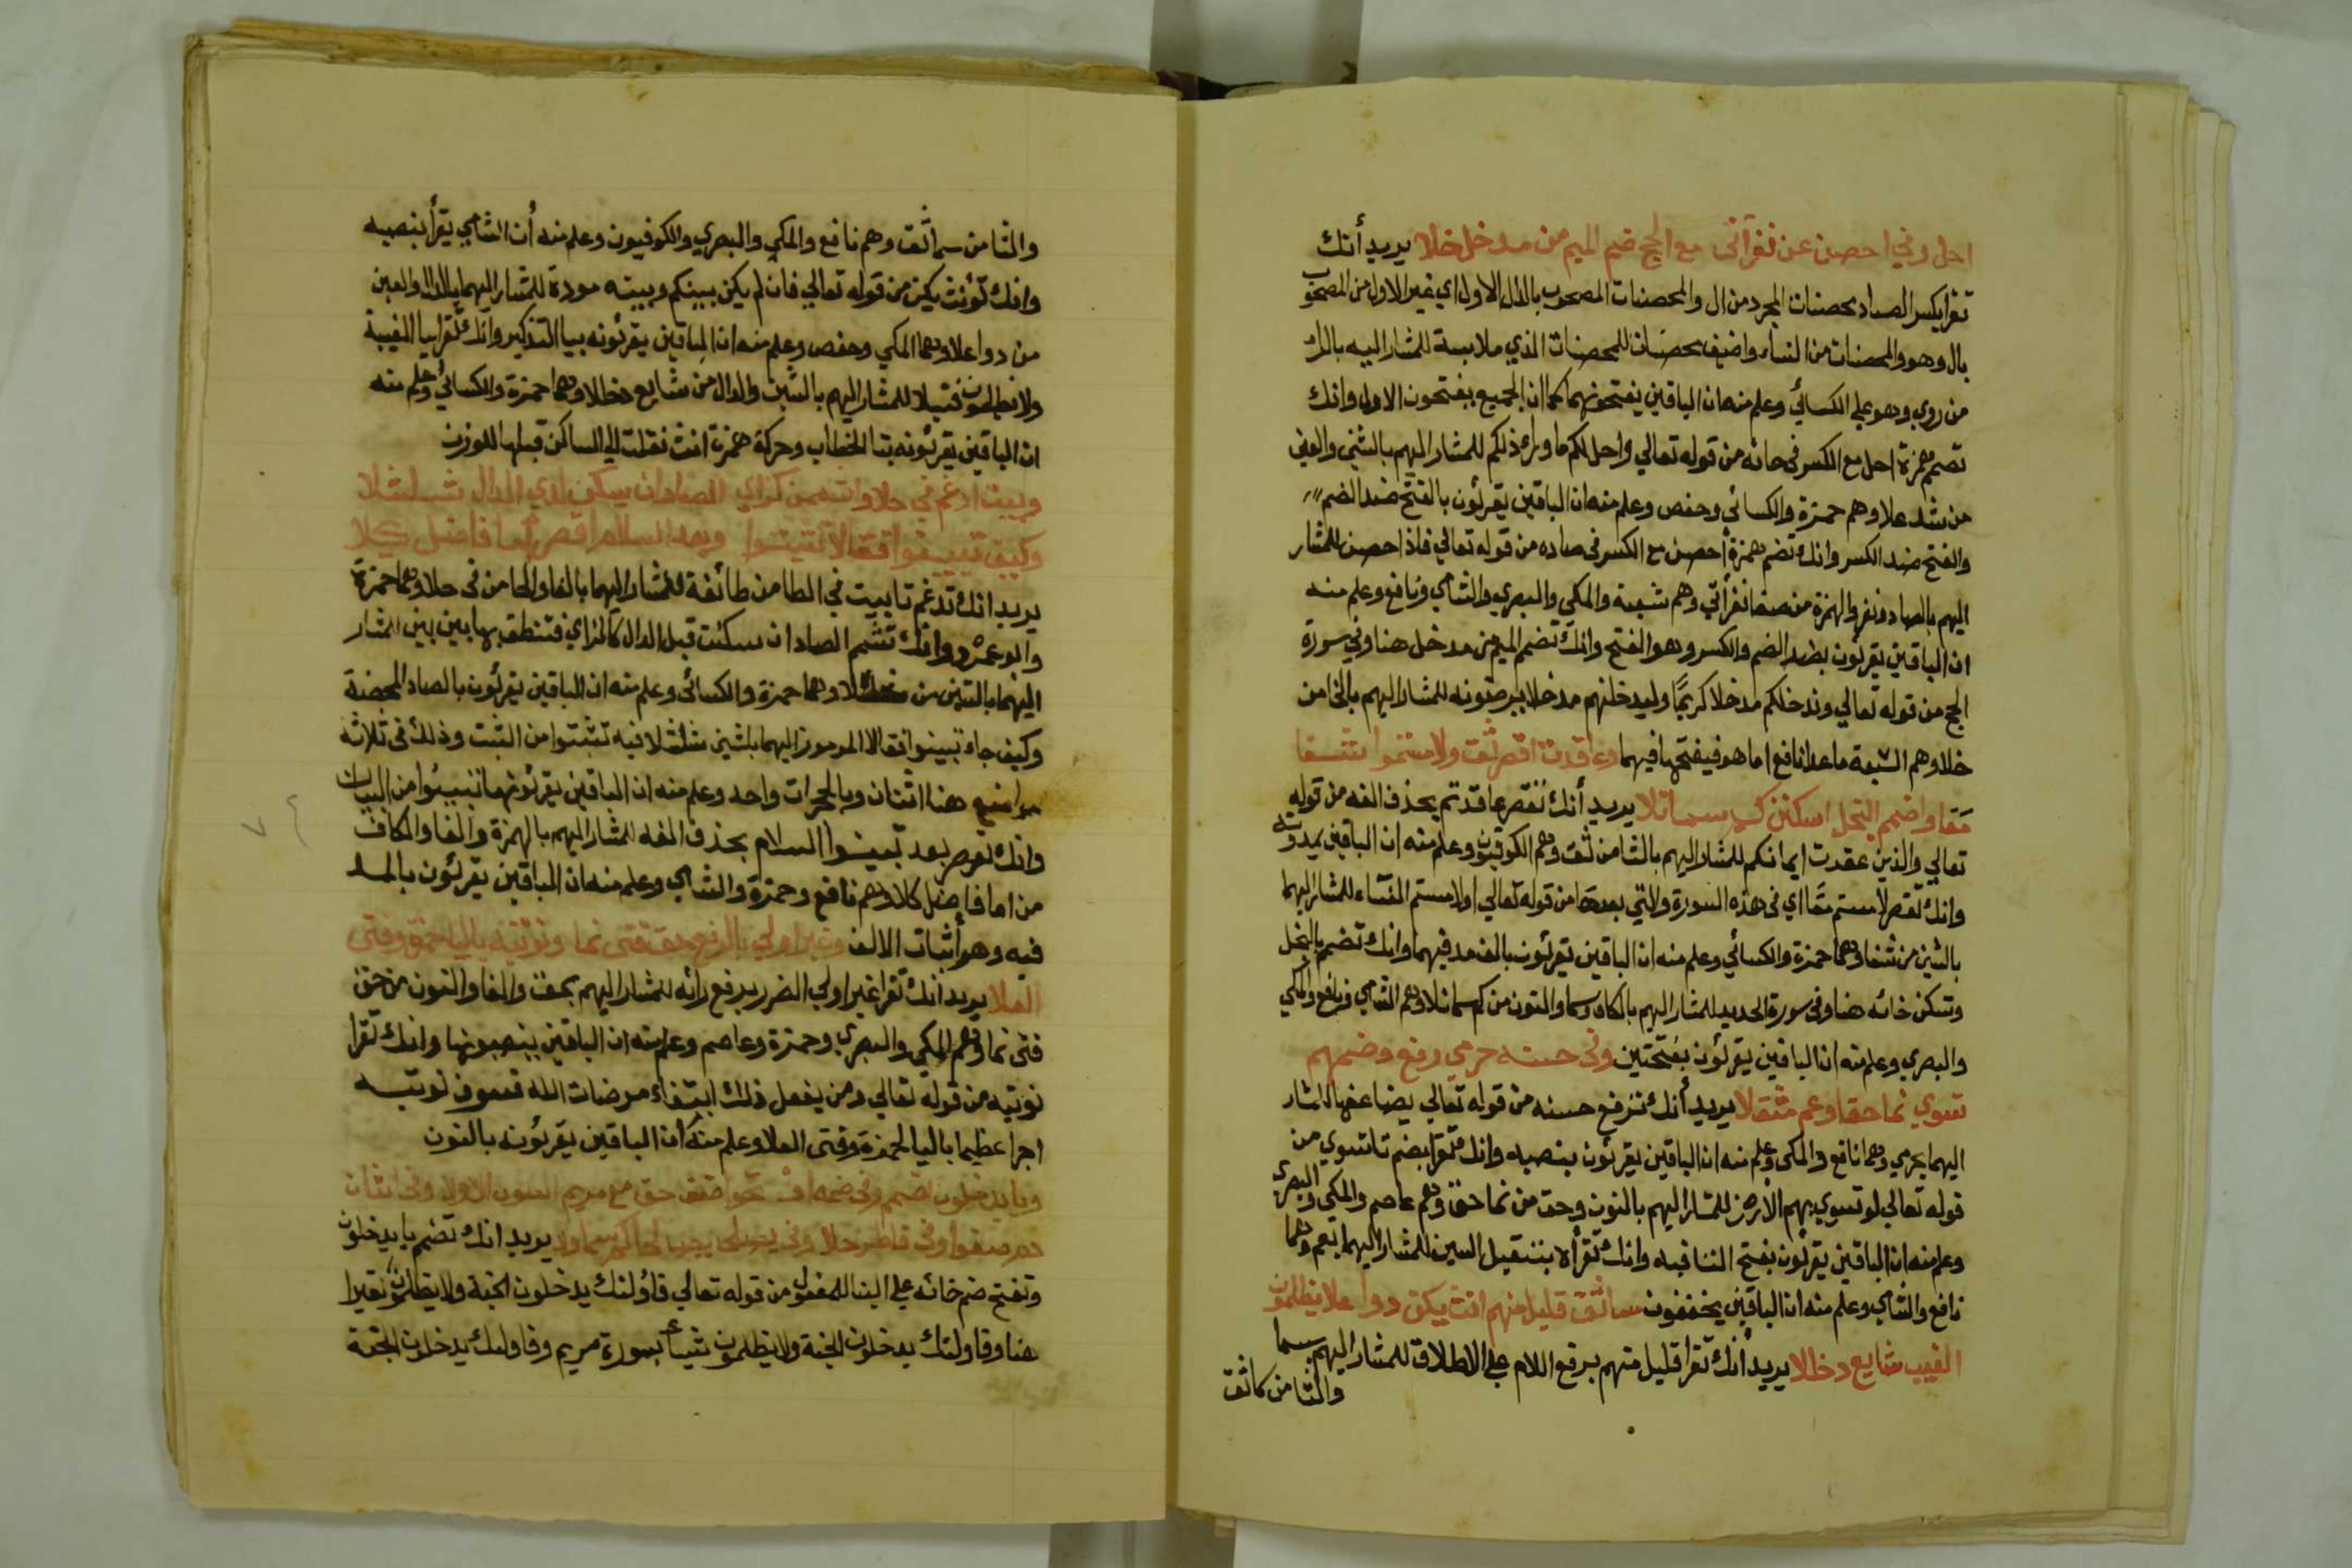 احل وفي احصن عن نفر اتى مع الحج ضم الميم من مدخل خلا يريد أنك
تقرا بكسر الصاد محصنات المجرد من ال والمحصنات المصحوب بال الاول اي غير الاول من المصحوب
بال وهو والمحصنات من النساء واضيف محصنات للمحصنات الذي ملابسة للمشار اليه بالرا
من روي وهو علي الكسائي وعلم منه ان الباقين يفتحونهما كما ان الجميع يفتحون الاول وانك
تضم همزة احل مع الكسر في حائه من قوله تعالي واحل لكم ما وراء ذلكم للمشار اليهم بالشين والعين
من شد علا وهم حمزة والكسائي وحفص وعلم منه ان الباقين يقرئون بالفتح ضد الضم
والفتح ضد الكسر وانك تضم همزة أحصن مع الكسر في صاده من قوله تعالي فاذا احصن للمشار
اليهم بالصاد ونفر والهمزة من صفا نفر أتي وهم شعبة والمكي والبصري والشامي ونافع وعلم منه
ان الباقين يقرئون بضد الضم والكسر وهو الفتح وانك تضم الميم من مدخل هنا وفي سورة
الحج من قوله تعالي وندخلكم مدخلا كريمًا وليدخلنهم مدخلا يرضونه للمشار اليهم بالخا من
خلا وهم السبعة ما عدا نافع اما هو فيفتحها فيهما وعاقدت اقصر ثق ولامستموا شفا
معًا واضمم البخل اسكنن كم سما نلا يريد أنك تقصر عاقدتم بحذف الفه من قوله
تعالي والذين عقدت ايمانكم للمشار اليهم بالثا من ثق وهم الكوفيون وعلم منه ان الباقين يمدونه
وانك تقصر لامستم معًا اي في هذه السورة والتي بعدها من قوله تعالي او لامستم النساء للمشار اليهما
بالشين من شفا وهما حمزة والكسائي وعلم منه ان الباقين يقرئون بالف مد فيهما وانك تضم بالبخل
وتسكن خائه هنا وفي سورة الحديد للمشار اليهم بالكاف وسما والنون من كم سما نلا وهم الشامي ونافع والمكي
والبصري وعلم منه ان الباقين يقرئون بفتحتين وفي حسنه حرمي رفع وضمهم
تسوي نما حقا وعم مثقلا يريد أنك ترفع حسنه من قوله تعالي يضاعفها للمشار
اليهما بحرمي وهما نافع والمكي وعلم منه ان الباقين يقرئون بنصبه وانك تقرا بضم تا تسوي من
قوله تعالي لو تسوي بهم الأرض للمشار اليهم بالنون وحق من نما حق وهم عاصم والمكي والبصري
وعلم منه ان الباقين يقرئون بفتح التا فيه وانك تقرأه بتثقيل السين للمشار اليهما بعم وهما
نافع والشامي وعلم منه ان الباقين يخففون سما ثق قليل منهم انث يكن دوا علا يظلمون
الغيب شايع دخالا يريد أنك تقرا قليل منهم برفع اللام علي الاطلاق للمشار اليهم بسما
والثا من كاثق
والثا من سما ثق وهم نافع والمكي والبصري والكوفيون وعلم منه أن الشامي يقرأ بنصبه
وانك تؤنث يكن من قوله تعالي فان لم يكن بينكم وبينه مودة للمشار اليهما بالدال والعين
من دوا علا وهما المكي وحفص وعلم منه ان الباقين يقرئونه بيا التذكير وانك تقرا بيا الغيبة
ولا يظلمون فتيلا للمشار اليهم بالشين والدال من شايع دخالا وهما حمزة والكسائي وعلم منه
ان الباقين يقرئونه بتا الخطاب وحركة همزة انث نقلت الي الساكن قبلها للوزن
وبيت ادغم في حلا واشممن كزاي الصاد ان يسكن لدي الدال شلشلا
وكيف تبينوا فقالا تثبتوا وبعد السلام اقصر أما فاضل كلا
يريد انك تدغم تا بيت في الطا من طائفة للمشار اليهما بالفا والحا من في حلا وهما حمزة
وابو عمرو وانك تشم الصاد ان سكنت قبل الدال كالزاي فتنطق بها بين بين للمشار
اليهما بالشين من شلشلا وهما حمزة والكسائي وعلم منه ان الباقين يقرئون بالصاد المحضة
وكيف جاء تبينوا فقالا المرموز اليهما بلشين شلشلا فيه تثبتوا من الثبت وذلك في ثلاثة
مواضيع هنا اثنان وبالحجرات واحد وعلم منه ان الباقين يقرئونها تبينوا من البيان
وانك تقصر بعد تبينوا السلام بحذف الفه للمشار اليهم بالهمزة والفا والكاف
من اما فاضل كلا وهم نافع وحمزة والشامي وعلم منه ان الباقين يقرئون بالمد
فيه وهو أثبات الالف وغير اولي بالرفع حق فتى نما ونؤتيه باليا حمزة وفتى
العلا يريد أنك تقرا غير اولي الضرر برفع رائه للمشار اليهم بحق والفا والنون من حق
فتى نما وهم المكي والبصري وحمزة وعاصم وعلم منه ان الباقين ينصبونها وانك تقرا
نؤتيه من قوله تعالي ومن يفعل ذلك ابتغاء مرضات الله فسوف نوتيه
اجرا عظيما باليا لحمزة وفتى العلا وعلم منه أن الباقين يقرئونه بالنون
ويا يدخلون اضمم وفي ضمه افتحوا صفى حق مع مريم الاولا وفي الثان
دم صفوا وفي فاطر حلا وفي يصلحا يصالحا كم سما ولا يريد انك تضم يا يدخلون
وتفتح ضم خائه علي البنا للمفعول من قوله تعالي فأولئك يدخلون الجنة ولا يظلمون نقيرا
هنا وفاولئك يدخلون الجنة ولا يظلمون شيئا بسورة مريم وفاولئك يدخلون الجنة